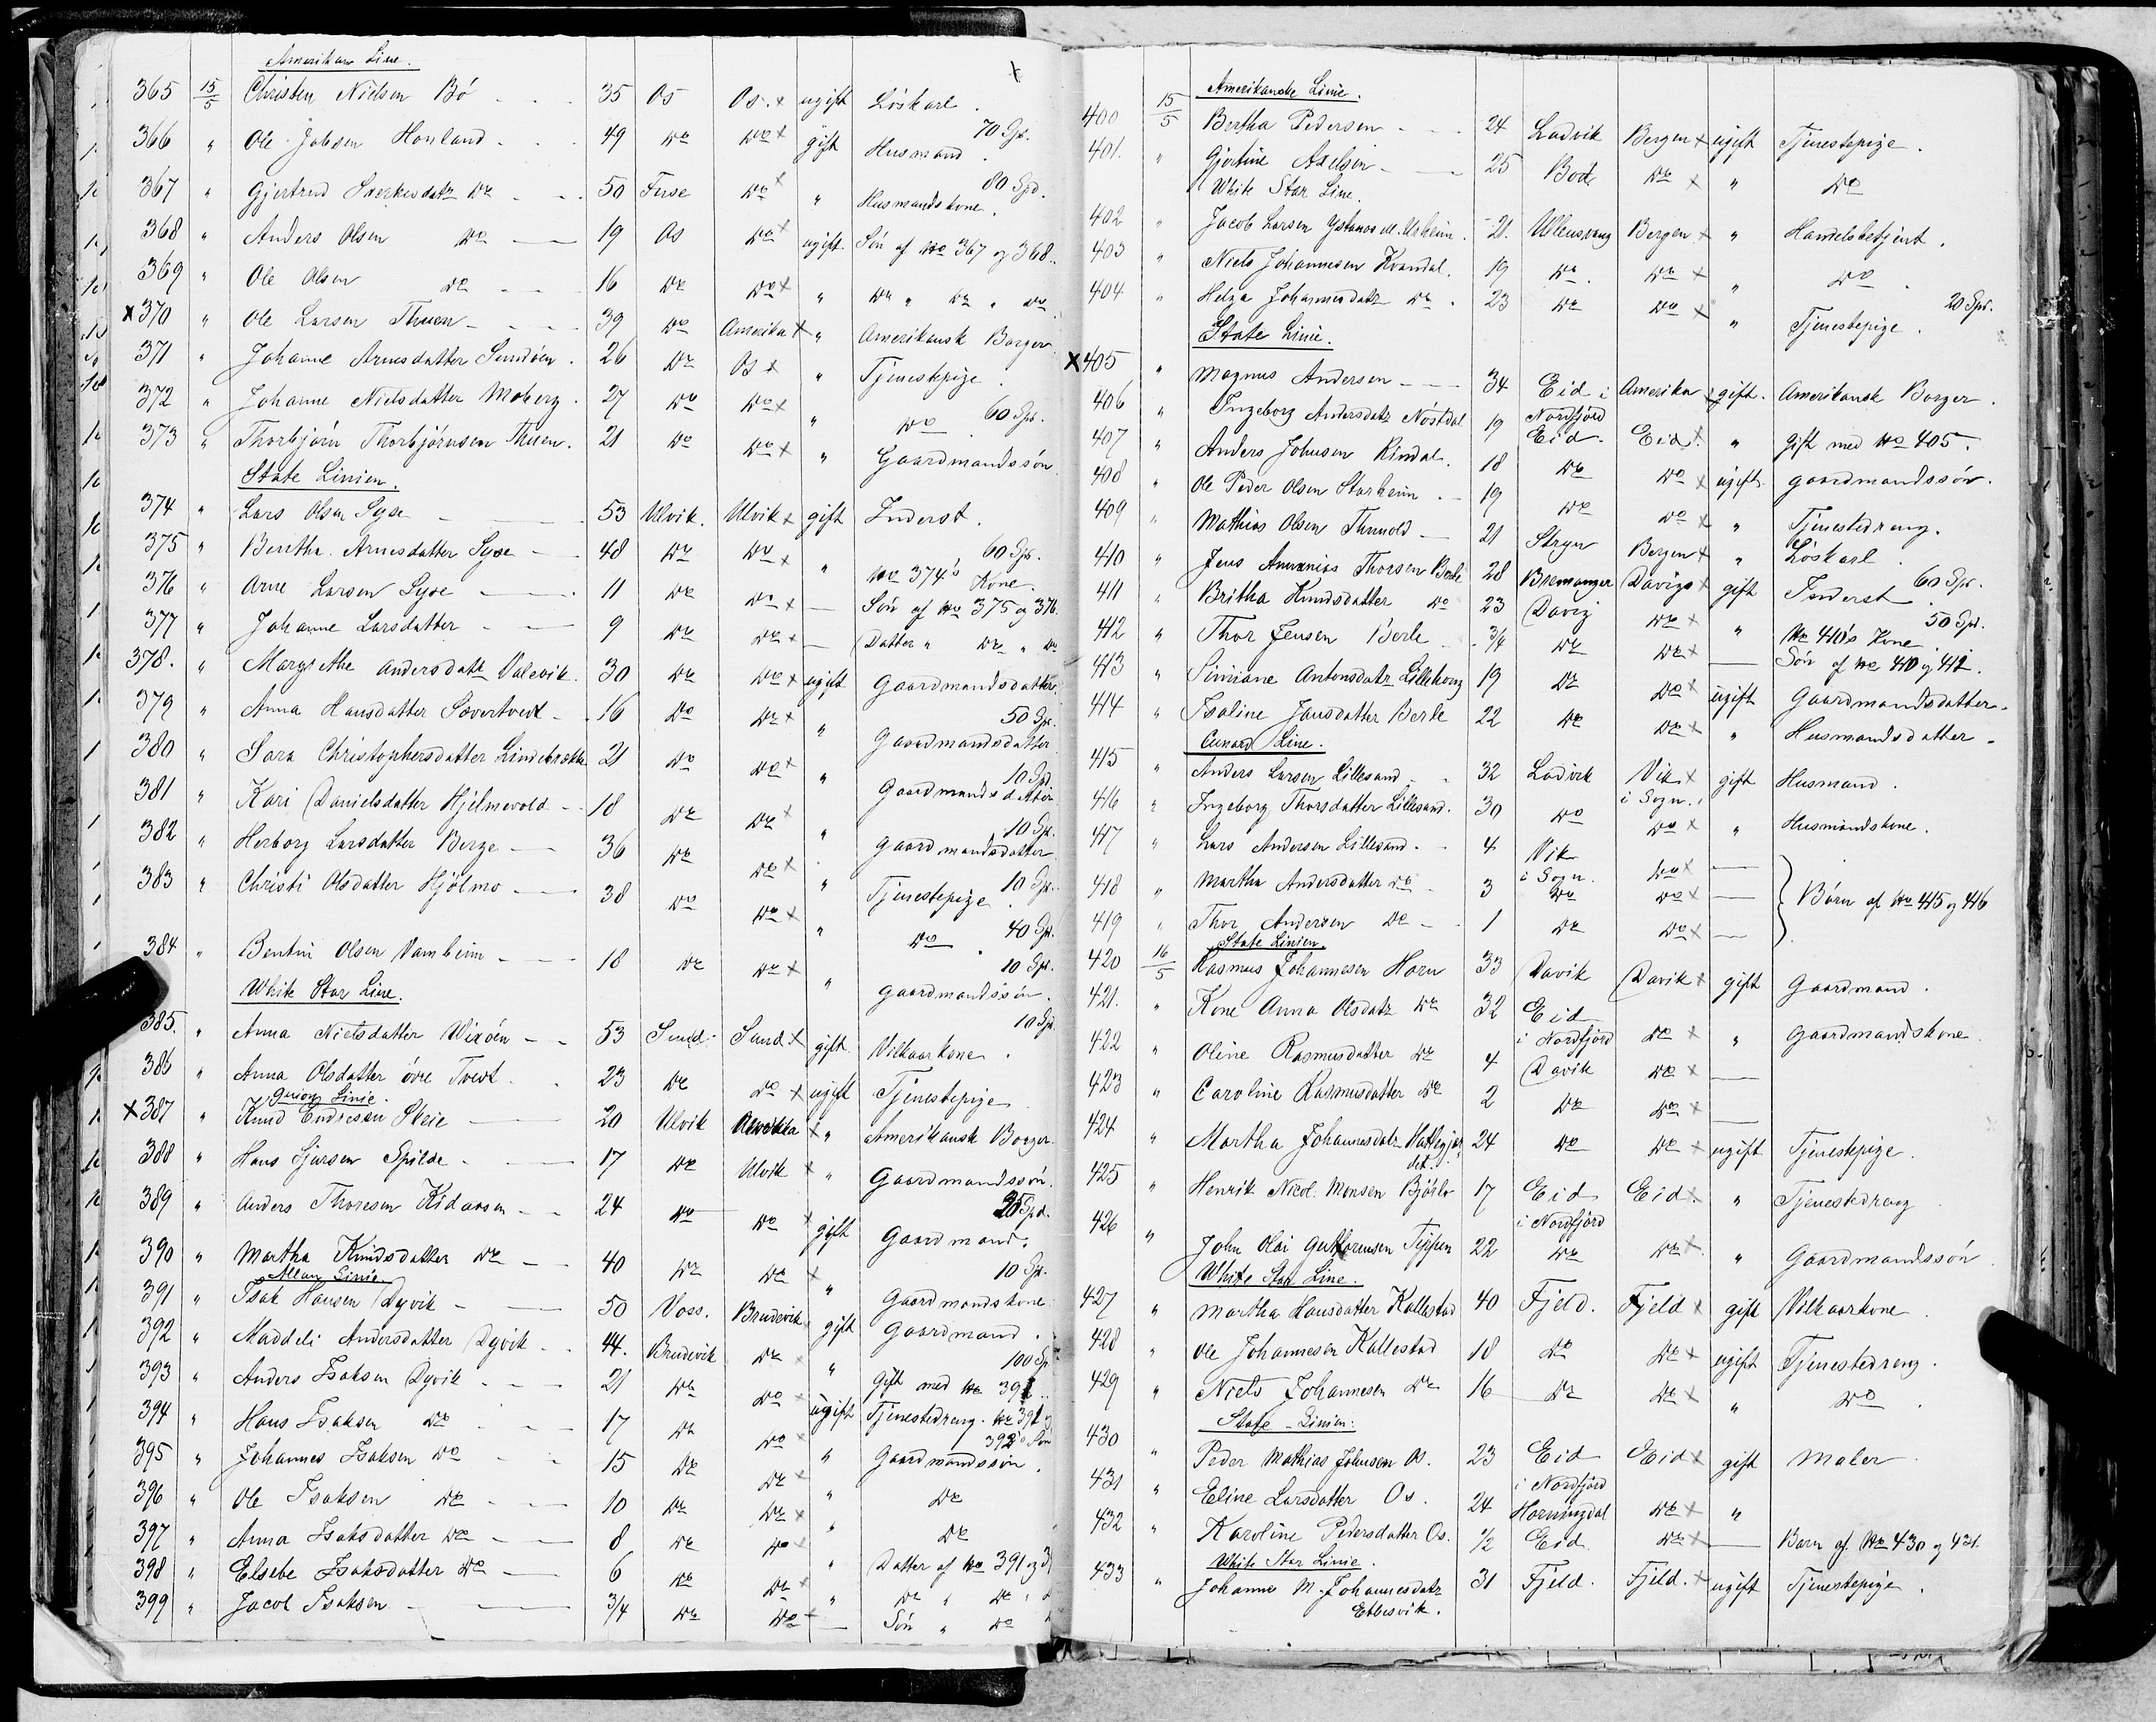 Amerikans Line.
365 15/5 Christen Nielsen Bö 35 Os Os ugift Löskarl.
70 Spd.
366 " Ole Jobsen Hauland 49 Do Do gift Husmand.
80 Spd.
367 " Gjertrud Sverkesdatr Do 50 Fuse Do " Husmandskone.
368 " Anders Olsen Do 19 Os Do ugift Sön af No 367 og 368.
369 " Ole Olsen Do 16 Do Do " Do " Do " Do
x 370 " Ole Larsen Thuen 39 Do Amerika " Amerikansk Borger
371 " Johanne Arnesdatter Sundöen 26 Do Os " Tjenestepige.
372 " Johanne Nielsdatter Moberg 27 Do Do " Do 60 Spd.
373 " Thorbjörn Thorbjörnsen Thuen. 21 Do Do " Gaardmandssön
State Linien.
374 " Lars Olsen Syse 53 Ulvik. Ulvik gift Inderst.
60 Spd.
375 " Beretha Arnesdatter Syse 48 Do Do " No 374's Kone.
376 " Arne Larsen Syse 11 Do Do — Sön af No 375 og 376.
377 " Johanne Larsdatter 9 Do Do — Datter " Do " Do
378. " Margrethe Andersdatr Valevik. 30 Do Do ugift Gaardmandsdatter
50 Spd.
379 " Anna Hansdatter Sævertveit 16 Do Do " Gaardmandsdatter
10 Spd.
380 " Sara Christophersdatter Lindebrække 21 Do Do " Gaardmandsdatter
10 Spd.
381 " Kari Danielsdatter Hjelmevold 18 Do Do " Gaardmandsdatter
382 " Herborg Larsdatter Berge 36 Do Do " Tjenestepige 10 Spd.
383 " Christi Olsdatter Hjölmo 38 Do Do " Do 40 Spd.
10 Spd.
384 " Bentin Olsen Vambeim 18 Do Do " Gaardmandssön.
White Star Line.
10 Spd
385. " Anna Nielsdatter Vixöen 53 Sund. Sund. gift Vilkaarkone.
386 " Anna Olsdatter övre Tveit 23 Do Do ugift Tjenestepige
Guion Linie.
x 387 " Knud Endresen Skeie 20 Ulvik Amerika " Amerikansk Borger.
388 " Hans Sjursen Spilde 17 Do Ulvik " Gaardmandssön.
Spd.
389 " Anders Thoresen Kidaasen 24 Do Do gift Gaardmand.
10 Spd.
390 " Martha Knudsdatter Do 40 Do Do " Gaardmandskone
Allan Linie.
391 " Isak Hansen Dyvik 50 Voss. Brudevik gift Gaardmand.
100 Sp
392 " Maddeli Andersdatter Dyvik 44. Brudevik Do " Gift med No 391.
393 " Anders Isaksen Dyvik 21 Do Do ugift Tjenestedreng. No 391 og
392's Sön
394 " Hans Isaksen Do 17 Do Do " Gaardmandssön.
395 " Johannes Isaksen Do 15 Do Do " Do
396 " Ole Isaksen Do 10 Do Do " Do
397 " Anna Isaksdatter Do 8 Do Do " Datter af No 391 og 3
398 " Elsebe Isaksdatter Do 6 Do Do " Do " Do
399 " Jacob Isaksen 3/4 Do Do — Sön " Do
Amerikanske Linie.
400 15/5 Bertha Pedersen 24 Ladvik Bergen ugift Tjenestepige.
401. " Gjertine Axelsen 25 Bodö Do " Do
White Star Line.
402 " Jacob Larsen Ystanes el. Urheim. 21. Ullensvang Bergen " Handelsbetjent.
403 " Niels Johannesen Kvandal. 19 Do. Do " Do.
20 Spd.
404 " Helga Johannesdatr Do. 23 Do Do " Tjenestepige.
State Linie.
x 405 " Magnus Andersen 34 Eid i Amerika gift. Amerikansk Borger.
Nordfjord
406 " Ingeborg Andersdatr Nöstdal 19 Eid. Eid. " Gift med No 405.
407 " Anders Johnsen Rindal. 18 Do Do ugift Gaardmandssön.
408 " Ole Peder Olsen Starheim 19 Do Do " Tjenestedreng.
409 " Mathias Olsen 21 Stryn Bergen " Löskarl.
60 Spd.
410 " Jens Annanias Thorsen Berle 28 Bremanger Davigs gift Inderst
50 Spd.
411 " Britha Knudsdatter Do 23 Davig Do " No 410's Kone
412 " Thor Jensen Berle 3/4 Do Do — Sön af No 410 og 412.
413 " Simiane Antonsdatr Lillehoug 19 Do Do ugift Gaardmandsdatter.
414 " Isaline Jansdatter Berle 22 Do Do " Husmandsdatter.
Cunard Line.
415 " Anders Larsen Lillesand 32 Ladvik Vik gift Husmand.
i Sogn.
416 " Ingeborg Thorsdatter Lillesand. 30 Do Do " Husmandskone.
417 " Lars Andersen Lillesand. 4 Vik Do —
i Sogn.
418 " Martha Andersdatter Do 3 Do Do — Börn af No 415 og 416
419 " Thor Andersen Do 1 Do Do —
State Linien.
420 16/5 Rasmus Johannesen Horn 33 Davik Davik gift Gaardmand.
421. " Kone Anna Olsdatr Do 32 Eid Do " Gaardmandskone.
i Nordfjord
422 " Oline Rasmusdatter Do 4 Davik Do —
423 " Caroline Rasmusdatter Do 2 Do Do —
424 " Martha Johannesdatr 24 Do Do ugift Tjenestepige.
425 " Henrik Nicol. Monsen Bjørlo 17 Eid Eid " Tjenestedreng
i Nordfjord
426 " John Olai Guttormsen Tippen 22 Do Do " Gaardmandssön
White Star Line.
427 " Martha Hansdatter Kallestad 40 Fjeld. Fjeld gift Vilkaarkone
428 " Ole Johannesen Kallestad 18 Do Do ugift Tjenestedreng.
429 " Niels Johannesen Do 16 Do Do " Do.
State-Linien:
430 " Peder Mathias Johnsen Os. 23 Eid Eid gift Maler.
i Nordfjord
431 " Eline Larsdatter Os. 24 Hornningdal Do "
432 " Karoline Pedersdatter Os. 1/2 Eid Do — Barn af No 430 og 431.
White Star Linie.
433 " Johanne M. Johannesdatr 31 Fjeld. Fjeld. ugift Tjenestepige.
Ebbesvik.